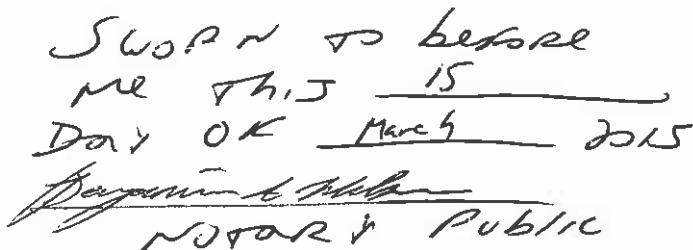 Sworn to before
me This 15
Day OF March 2015
NOTARY Public